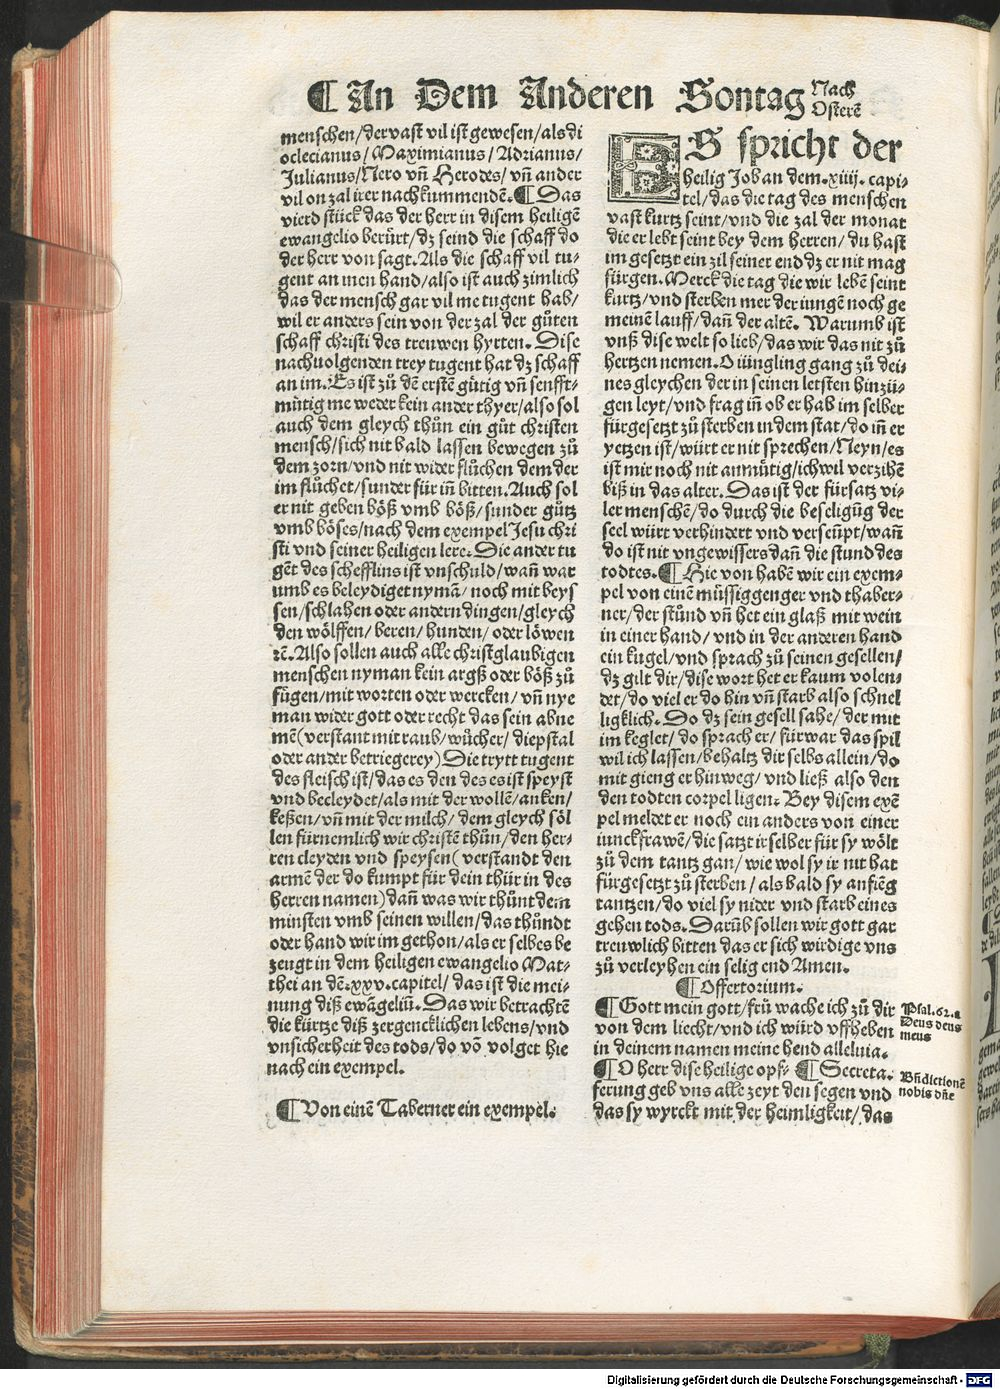 ¶ An Dem Anderen Sontag Nach
Osterē
menschen/der vast vil ist gewesen/als di
oclecianus/Maximianus/Adrianus/
Julianus/Nero vn̄ Herodes/vn̄ ander
vil on zal irer nachkummendē.¶ Das
vierd stück das der herr in disem heiligē
ewangelio berürt/dz seind die schaff do
der herr von sagt. Als die schaff vil tu⸗
gent an inen hand/also ist auch zimlich
das der mensch gar vil me tugent hab/
wil er anders sein von der zal der gůten
schaff christi des treuwen hyrten. Dise
nachuolgenden trey tugent hat dz schaff
an im. Es ist zů dē erstē gütig vn̄ senfft⸗
mütig me weder kein ander thyer/also sol
auch dem gleych thůn ein gůt christen
mensch/sich nit bald lassen bewegen zů
dem zorn/vnd nit wider flůchen dem der
im flůchet/sunder für in̄ bitten. Auch sol
er nit geben böß vmb böß/sunder gůtz
vmb böses/nach dem exempel Jesu chri
sti vnd seiner heiligen lere. Die ander tu
gēt des schefflins ist vnschuld/wan̄ war
umb es beleydiget nymā/noch mit beys
sen/schlahen oder andern dingen/gleych
den wölffen/beren/hunden/oder löwen
rē. Also sollen auch alle christglaubigen
menschen nyman kein argß oder böß zů
fügen/mit worten oder wercken/vn̄ nye
man wider gott oder recht das sein abne
mē(verstant mit raub/wůcher/diepstal
oder ander betriegerey) Die trytt tugent
des fleisch ist/das es den des es ist speyst
vnd becleydet/als mit der wollē/ancken/
keßen/vn̄ mit der milch/dem gleych söl
len fürnemlich wir christē thůn/den her⸗
ren cleyden vnd speysen(verstandt den
armē der do kumpt für dein thür in des
herren namen)dan̄ was wir thůnt dem
minsten vmb seinen willen/das thůndt
oder hand wir im gethon/als er selbes be
zeugt in dem heiligen ewangelio Mat⸗
thei an dē.xxv.capitel/das ist die mei⸗
nung diß ewāgeliū. Das wir betrachtē
die kürtze diß zergencklichen lebens/vnd
vnsicherheit des tods/do vō volget hie
nach ein exempel.
¶ Von einē Taberner ein exempel.
ES spricht der
heilig Job an dem.xiiij.capi⸗
tel/das die tag des menschen
vast kurtz seint/vnd die zal der monat
die er lebt seint bey dem herren/du hast
im gesetzt ein zil seiner end dz er nit mag
fürgen. Merck die tag die wir lebē seint
kurtz/vnd sterben mer der iungē noch ge
meinē lauff/dan̄ der altē. Warumb ist
vnß dise welt so lieb/das wir das nit zů
hertzen nemen. O iüngling gang zů dei⸗
nes gleychen der in seinen letsten hinzü⸗
gen leyt/vnd frag in̄ ob er hab im selber
fürgesetzt zů sterben in dem stat/do in̄ er
yetzen ist/würt er nit sprechen/Neyn/es
ist mir noch nit anmůtig/ich wil verzihē
biß in das alter. Das ist der fürsatz vi⸗
ler menschē/do durch die beseligūg der
seel würt verhindert vnd verseūpt/wan̄
do ist nit vngewissers dan̄ die stund des
todtes.¶ Hie von habē wir ein exem⸗
pel von einē müssiggenger vnd thaber⸗
ner/der stůnd vn̄ het ein glaß mit wein
in einer hand/vnd in der anderen hand
ein kugel/vnd sprach zů seinen gesellen/
dz gilt dir/dise wort het er kaum volen⸗
det/do viel er do hin vn̄ starb also schnel
ligklich. Do dz sein gesell sahe/der mit
im keglet/do sprach er/fürwar das spil
wil ich lassen/behaltz dir selbs allein/do
mit gieng er hinweg/vnd ließ also den
den todten corpel ligen. Bey disem exē
pel meldet er noch ein anders von einer
iunckfrawē/die satzt ir selber für sy wölt
zů dem tantz gan/wie wol sy ir nit hat
fürgesetzt zů sterben/als bald sy anfiēg
tantzen/do viel sy nider vnd starb eines
gehen tods. Darūb sollen wir gott gar
treuwlich bitten das er sich wirdige vns
zů verleyhen ein selig end Amen.
¶ Offertorium.
¶ Gott mein gott/frü wache ich zů dir
von dem liecht/vnd ich würd vffheben
in deinem namen meine hend alleluia.
Psal.62.a
Deus deus
meus
¶ O herr dise heilige opf⸗ ¶ Secreta.
ferung geb vns alle zeyt den segen vnd
das sy wyrckt mit der heimligkeit/das
Bn̄dictionē
nobis dn̄e
Digitalisierung gefördert durch die Deutsche Forschungsgemeinschaft - DFG